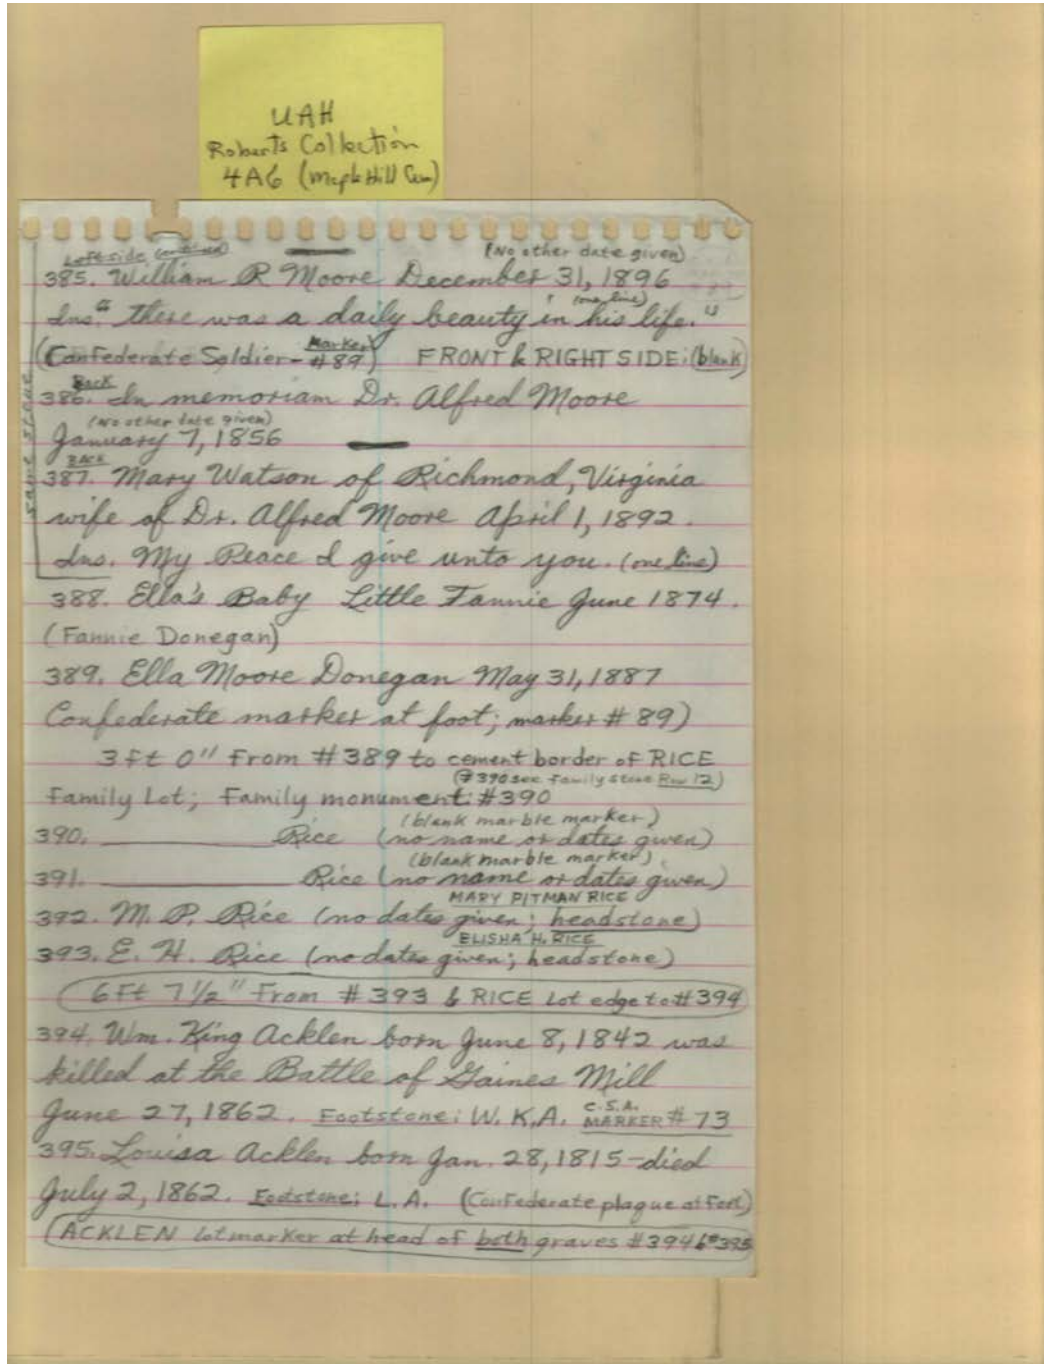 UAH
Roberts Collection
4A6 (Maple Hill Cem)
Left side (continued) (No other date given)
385. William R Moore December 31, 1896
(one line)
Ins. "there was a daily beauty in his life."
(Confederate Soldier - Marker #89) FRONT & RIGHT SIDE: (blank)
Back
386. In memoriam Dr. Alfred Moore
(No other date given)
January 7, 1856
BACK
387. Mary Watson of Richmond, Virginia
wife of Dr. Alfred Moore April 1, 1892.
Ins. My Peace I give unto you. (one line)
same stone
388. Ella's Baby Little Fannie June 1874.
(Fannie Donegan)
389. Ella Moore Donegan May 31, 1887
Confederate marker at foot; marker # 89)
3 ft 0" From #389 to cement border of RICE
(#390 see family stone Row 12)
Family Lot; Family monument: #390
(blank marble marker)
390. ________ Rice (no name or dates given)
(blank marble marker)
391. ________ Rice (no name or dates given)
MARY PITMAN RICE
392. M. P. Rice (no dates given; headstone)
ELISHA H. RICE
393. E. H. Rice (no dates given; headstone)
6 Ft 7 1/2" From #393 & RICE Lot edge to #394
394. Wm. King Acklen born June 8, 1842 was
killed at the Battle of Gaines Mill
June 27, 1862. Footstone: W. K. A. C.S.A. MARKER # 73
395. Louisa Acklen born Jan. 28, 1815 - died
July 2, 1862. Footstone: L. A. (Confederate plaque at Foot)
ACKLEN Lot marker at head of both graves #394 & #395